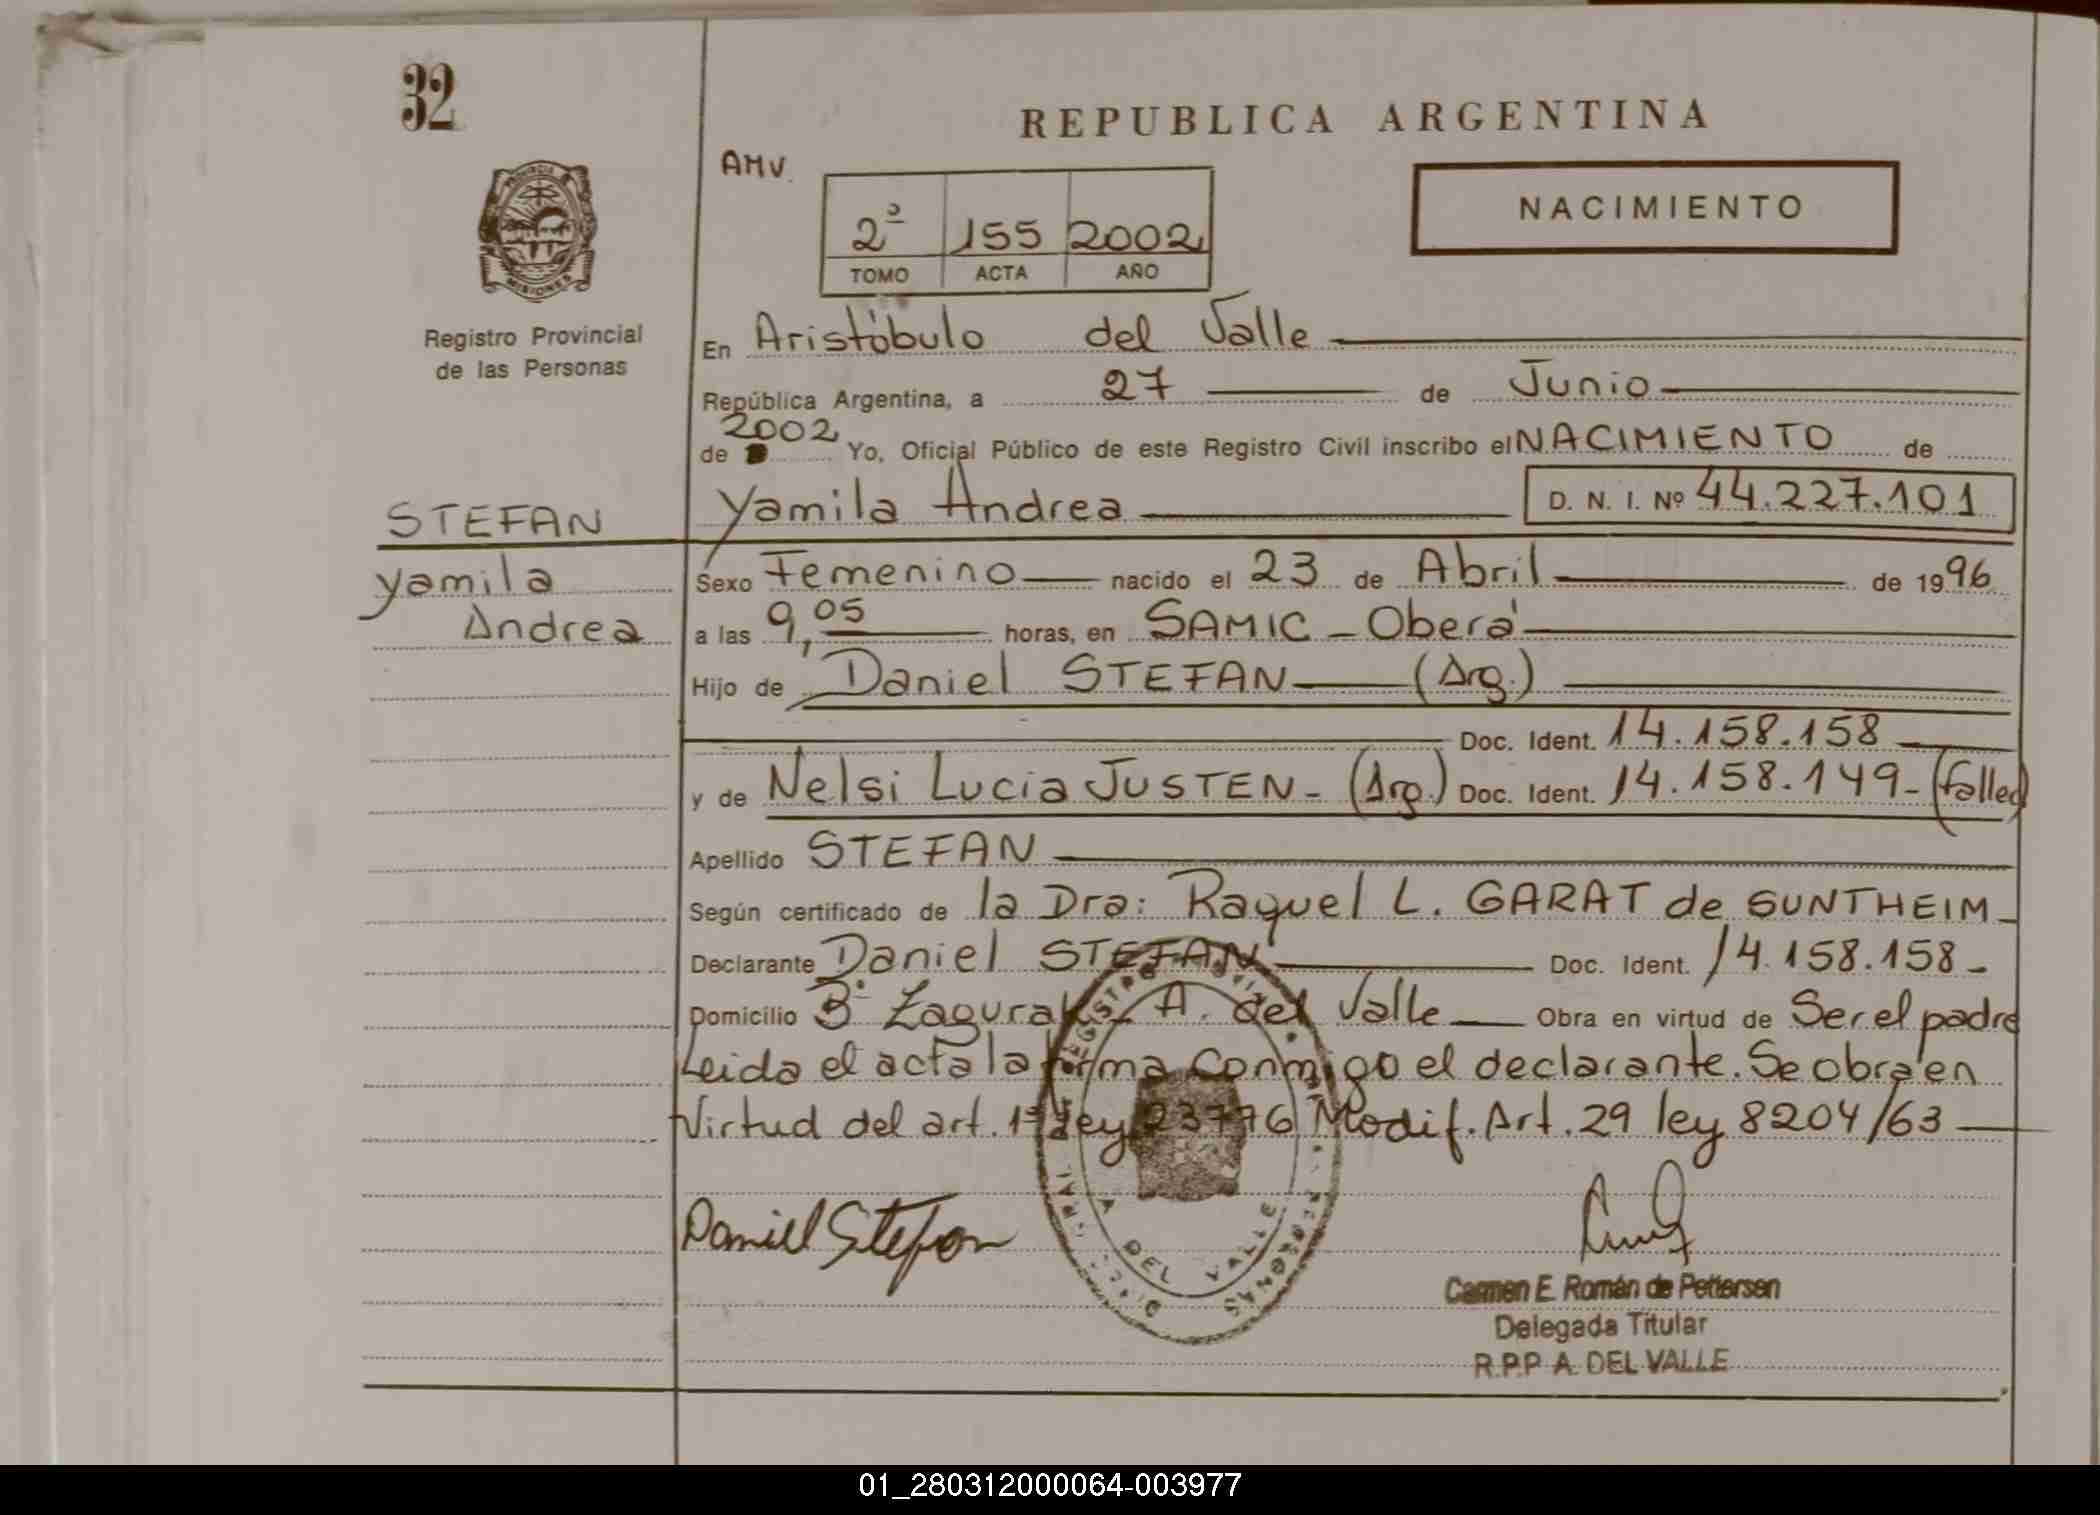 32
REPUBLICA ARGENTINA
AMV.
NACIMIENTO
2º 155 2002
TOMO ACTA AÑO
PROVINCIA DE
MISIONES
Registro Provincial
de las Personas
En Aristóbulo del Valle
República Argentina, a 27 de Junio
2002
de Yo, Oficial Público de este Registro Civil inscribo el NACIMIENTO de
STEFAN Yamila Andrea D. N. I. Nº 44.227.101
Yamila Sexo Femenino nacido el 23 de Abril de 1996
Andrea a las 9,05 horas, en SAMIC - Oberá
Hijo de Daniel STEFAN (Arg.)
Doc. Ident. 14.158.158
y de Nelsi Lucia JUSTEN - (Arg.) Doc. Ident. 14.158.149 - (falled)
Apellido STEFAN
Según certificado de la Dra: Raquel L. GARAT de SUNTHEIM -
Declarante Daniel STEFAN Doc. Ident. 14.158.158 -
Domicilio Bº Zagural - A. del Valle Obra en virtud de Ser el padre
Leida el acta la firma conmigo el declarante. Se obra en
Virtud del art. 1º ley 23776 Modif. Art. 29 ley 8204/63
Daniel Stefan
A DEL VALLE
Carmen E. Román de Pettersen
Delegada Titular
R.P.P A. DEL VALLE
01_280312000064-003977